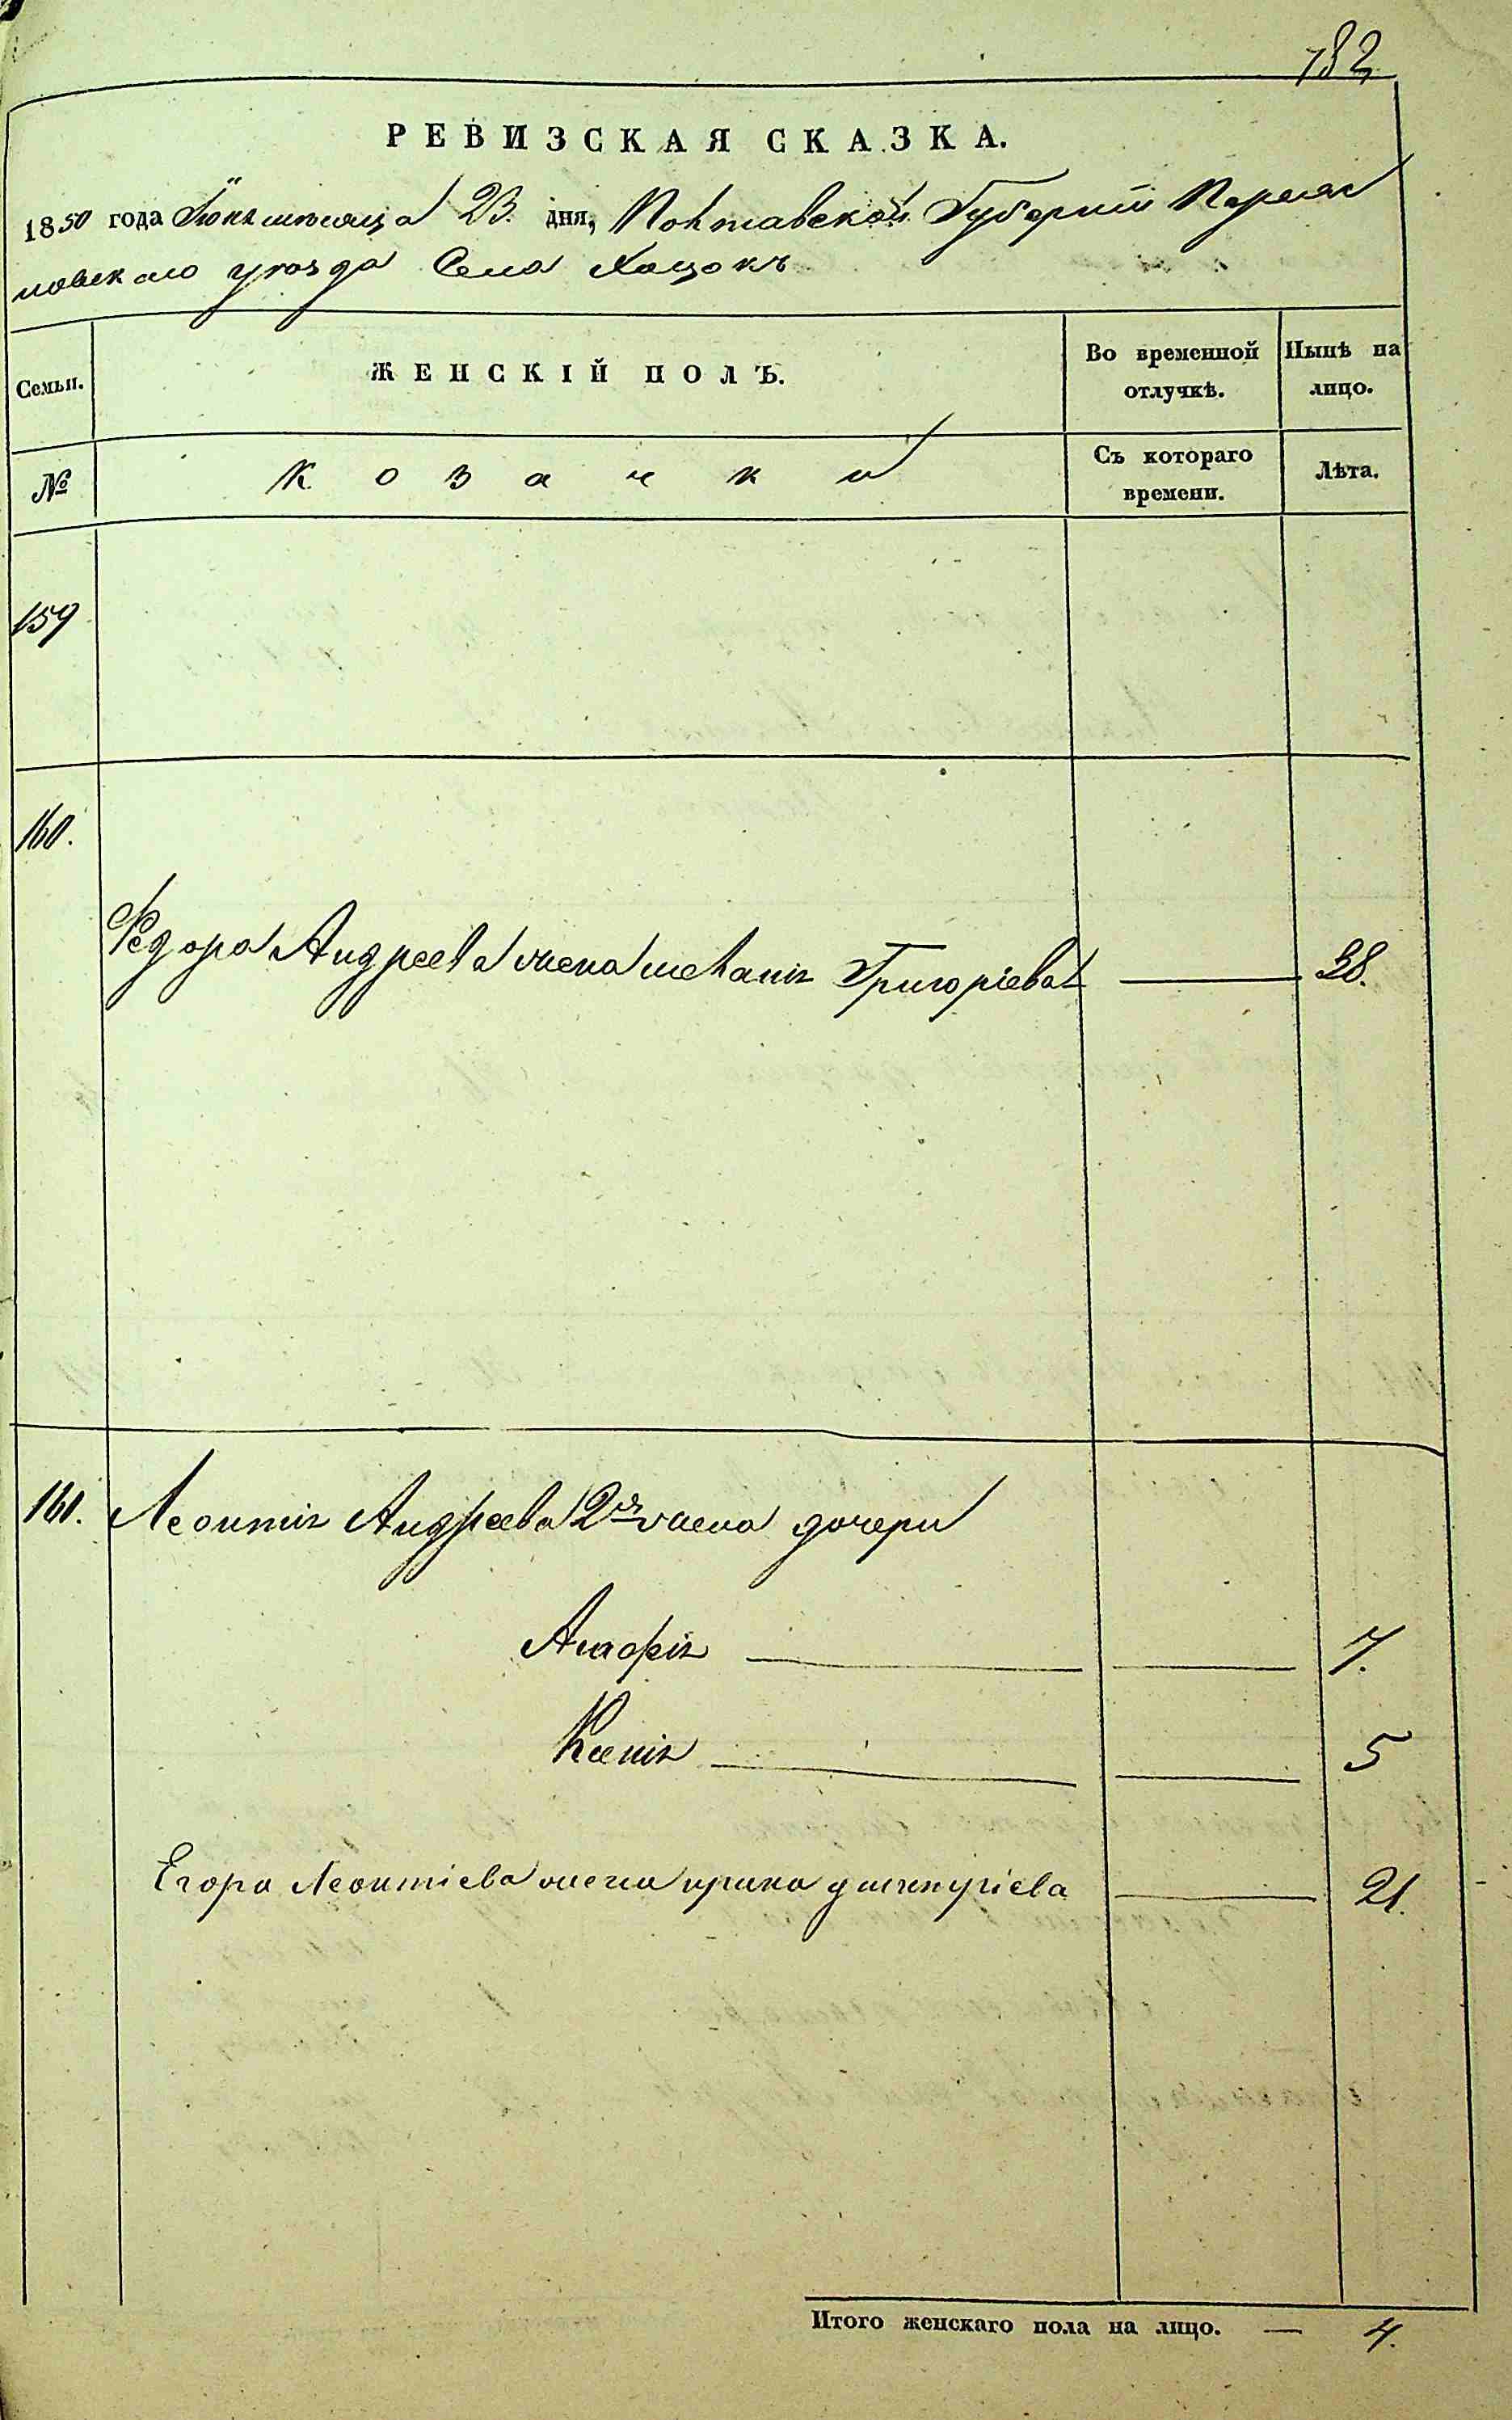 782
РЕВИЗСКАЯ СКАЗКА.
1850 года Іюня мѣсяца 23. дня, Полтавской Губерніи Переяс
ловскаго уѣзда Села Хоцокъ
Семьи.
ЖЕНСКІЙ ПОЛЪ.
Во временной отлучкѣ.
Нынѣ на лицо.
№
Козачки
Съ котораго времени.
Лѣта.
159
160.
Федора Андреева жена меланія Григоріева — 38.
161. Леонтія Андреева 2й жена дочери
Агафія — 7.
Ксенія — 5
Егора Леонтіева жена ирина — 21.
Итого женскаго пола на лицо. — 4.